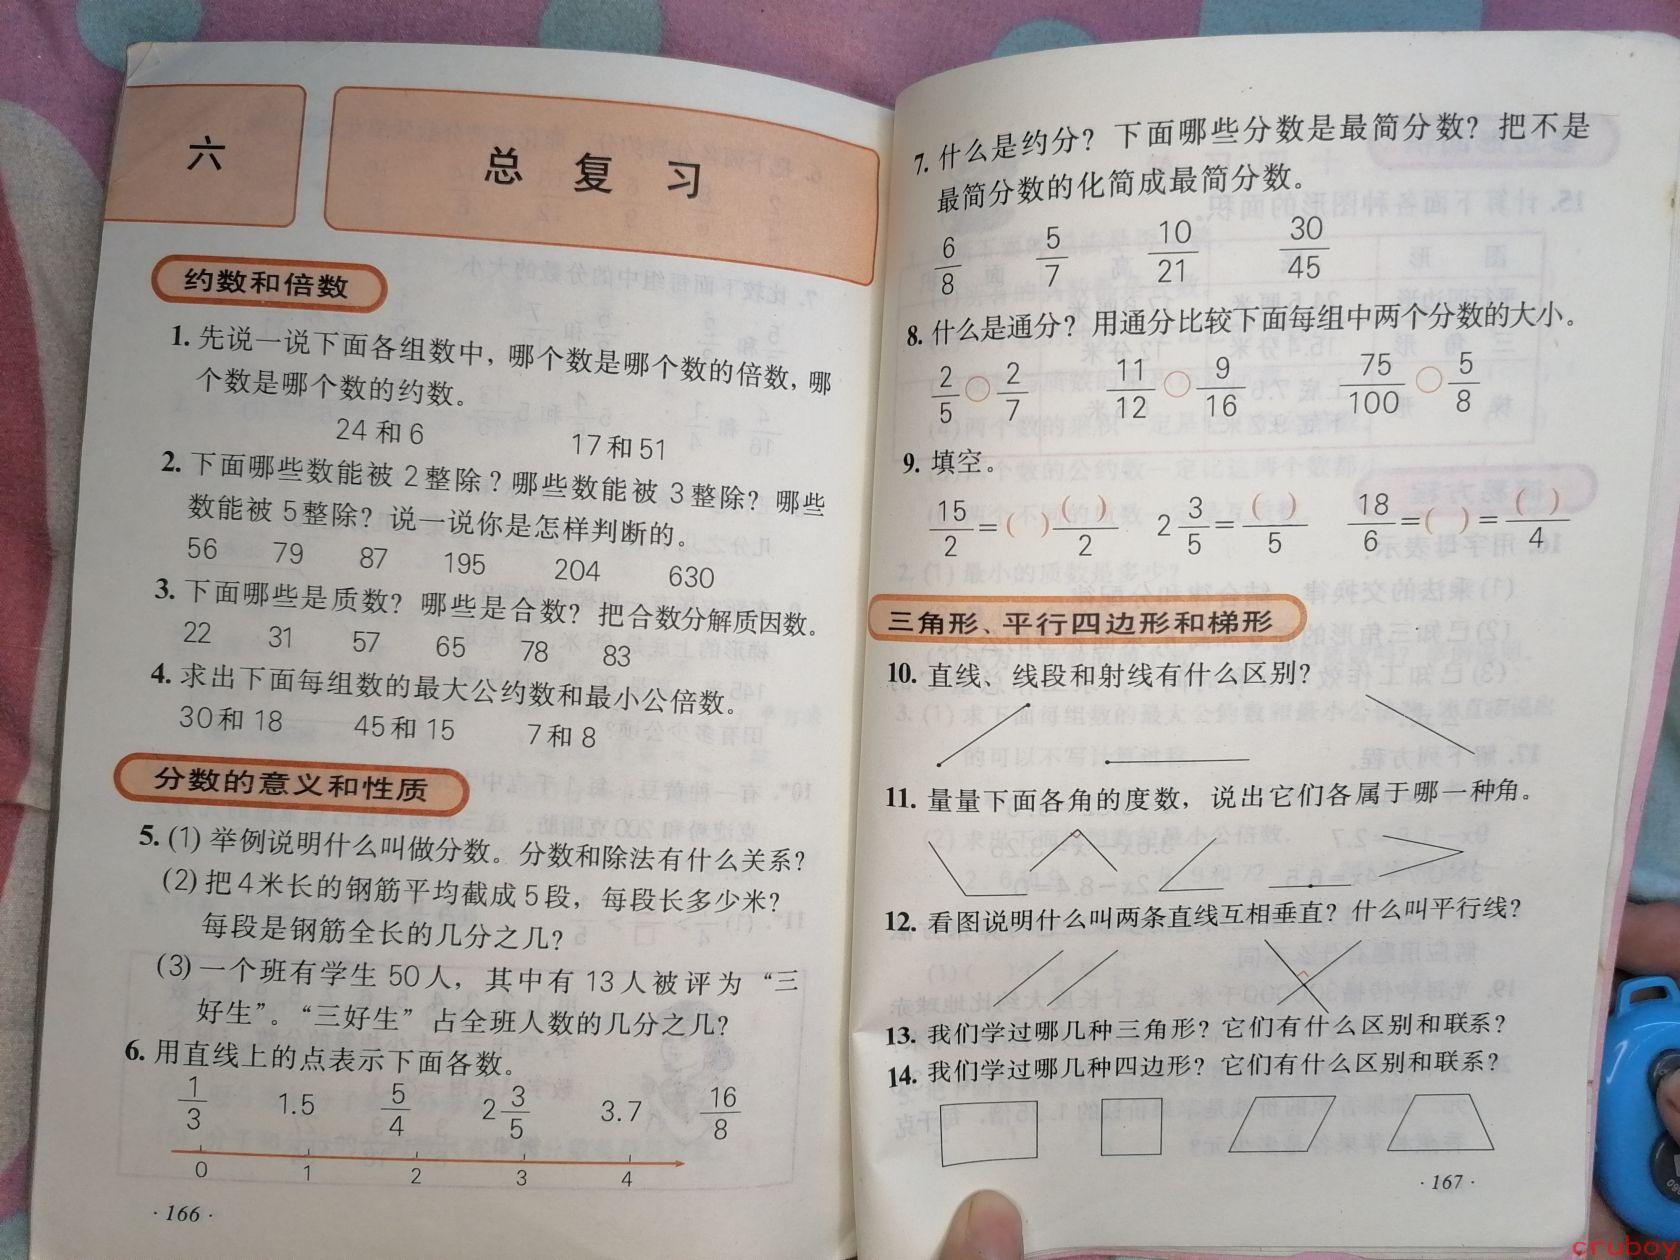 六
总 复 习
约数和倍数
1. 先说一说下面各组数中，哪个数是哪个数的倍数，哪
个数是哪个数的约数。
24 和 6 17 和 51
2. 下面哪些数能被 2 整除？哪些数能被 3 整除？哪些
数能被 5 整除？说一说你是怎样判断的。
56 79 87 195 204 630
3. 下面哪些是质数？哪些是合数？把合数分解质因数。
22 31 57 65 78 83
4. 求出下面每组数的最大公约数和最小公倍数。
30 和 18 45 和 15 7 和 8
分数的意义和性质
5. (1) 举例说明什么叫做分数。分数和除法有什么关系？
(2) 把 4 米长的钢筋平均截成 5 段，每段长多少米？
每段是钢筋全长的几分之几？
(3) 一个班有学生 50 人，其中有 13 人被评为“三
好生”。“三好生”占全班人数的几分之几？
6. 用直线上的点表示下面各数。
1/3 1.5 5/4 2 3/5 3.7 16/8
0 1 2 3 4
· 166 ·
7. 什么是约分？下面哪些分数是最简分数？把不是
最简分数的化简成最简分数。
6/8 5/7 10/21 30/45
8. 什么是通分？用通分比较下面每组中两个分数的大小。
2/5 ○ 2/7 11/12 ○ 9/16 75/100 ○ 5/8
9. 填空。
15/2 = ( ) ( )/2 2 3/5 = ( )/5 18/6 = ( ) = ( )/4
三角形、平行四边形和梯形
10. 直线、线段和射线有什么区别？
11. 量量下面各角的度数，说出它们各属于哪一种角。
12. 看图说明什么叫两条直线互相垂直？什么叫平行线？
13. 我们学过哪几种三角形？它们有什么区别和联系？
14. 我们学过哪几种四边形？它们有什么区别和联系？
· 167 ·
cruboy